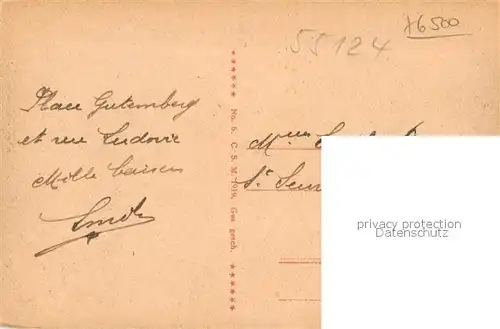 76500
55124
Place Gutemberg
et rue Ludovic
Mille baisers
No. 6. C. S. M. 1919. Ges. gesch.
Mme
St
privacy protection
Datenschutz